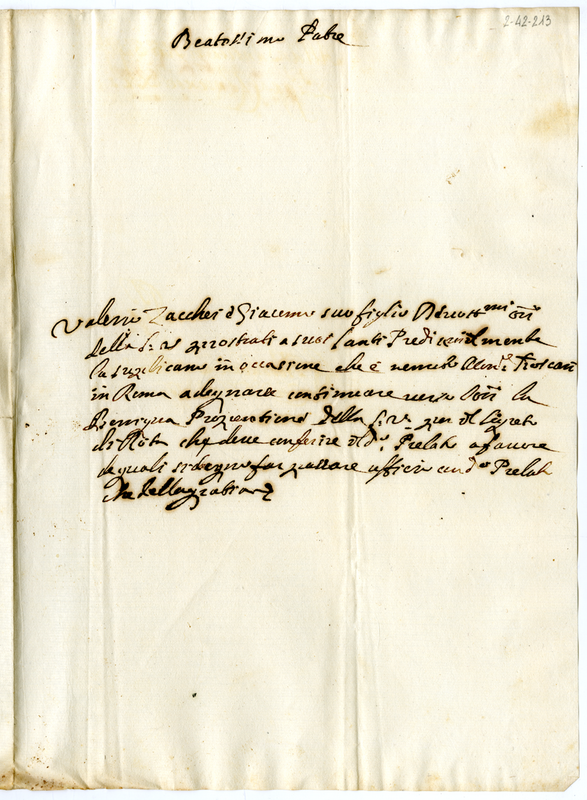 2-42-213
Beatissimo Padre
Valerio Zacchei e Giacomo suo figlio Devot.mi Orri
della S. V. prostrati a suoi santi Piedi umilmente
la supplicano in occasione che è venuto
in Roma a degnarsi continuare verso Orri la
Benigna Propentione della S. V. per il
di Rota che deve conferire d.o Prelato a favore
de quali si degni far passare officio con d.o Prelato
Che della gratia